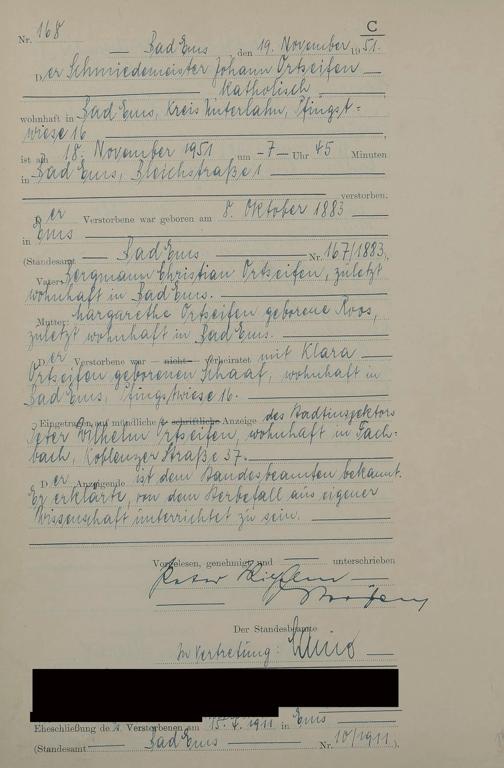 C
Nr. 168
Bad Ems, den 19. November 1951.
Der Schmiedemeister Johann Ortseifen
katholisch
wohnhaft in Bad Ems, Kreis Unterlahn, Pfingst-
wiese 16
ist am 18. November 1951 um -7- Uhr 45 Minuten
in Bad Ems, Bleichstraße 1
verstorben.
Der Verstorbene war geboren am 8. Oktober 1883
in Ems
(Standesamt Bad Ems Nr. 167/1883).
Vater: Bergmann Christian Ortseifen, zuletzt
wohnhaft in Bad Ems.
Mutter: Margarethe Ortseifen geborene Roos,
zuletzt wohnhaft in Bad Ems.
Der Verstorbene war nicht verheiratet mit Klara
Ortseifen geborenen Schaaf, wohnhaft in
Bad Ems, Pfingstwiese 16.
Eingetragen auf mündliche schriftliche Anzeige des Stadtinspektors
Peter Wilhelm Ortseifen, wohnhaft in Fach-
bach, Koblenzer Straße 37.
Der Anzeigende ist dem Standesbeamten bekannt.
Er erklärte, von dem Sterbefall aus eigener
Wissenschaft unterrichtet zu sein.
Vorgelesen, genehmigt und unterschrieben
Peter Wilhelm
Ortseifen
Der Standesbeamte
In Vertretung:
Eheschließung de Verstorbenen am 1911 in Ems
(Standesamt Bad Ems Nr. 10/1911).